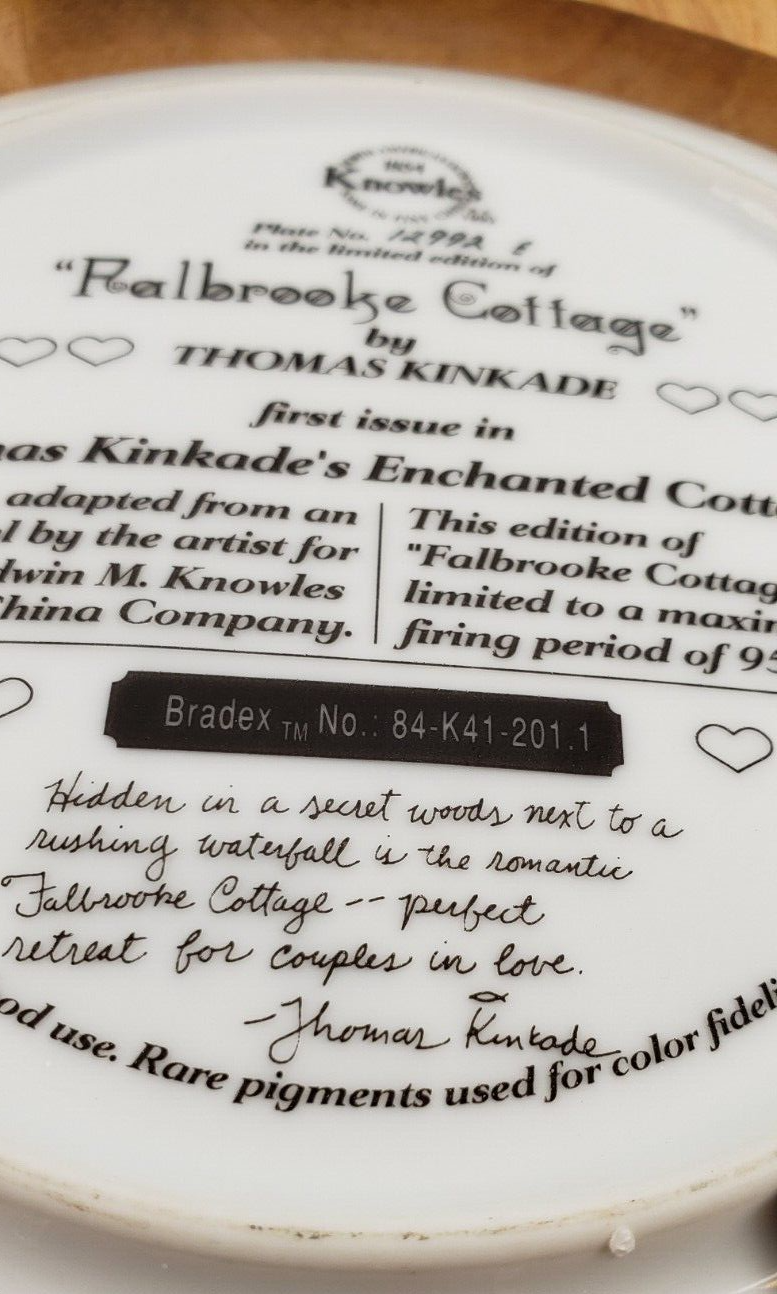 1854
Knowles
Plate No. 12992 E
in the limited edition of
“Falbrooke Cottage”
by
THOMAS KINKADE
first issue in
as Kinkade's Enchanted Cott
adapted from an
l by the artist for
dwin M. Knowles
hina Company.
This edition of
"Falbrooke Cottag
limited to a maxim
firing period of 95
Bradex TM No.: 84-K41-201.1
Hidden in a secret woods next to a
rushing waterfall is the romantic
Falbrooke Cottage -- perfect
retreat for couples in love.
-Thomas Kinkade
od use. Rare pigments used for color fideli